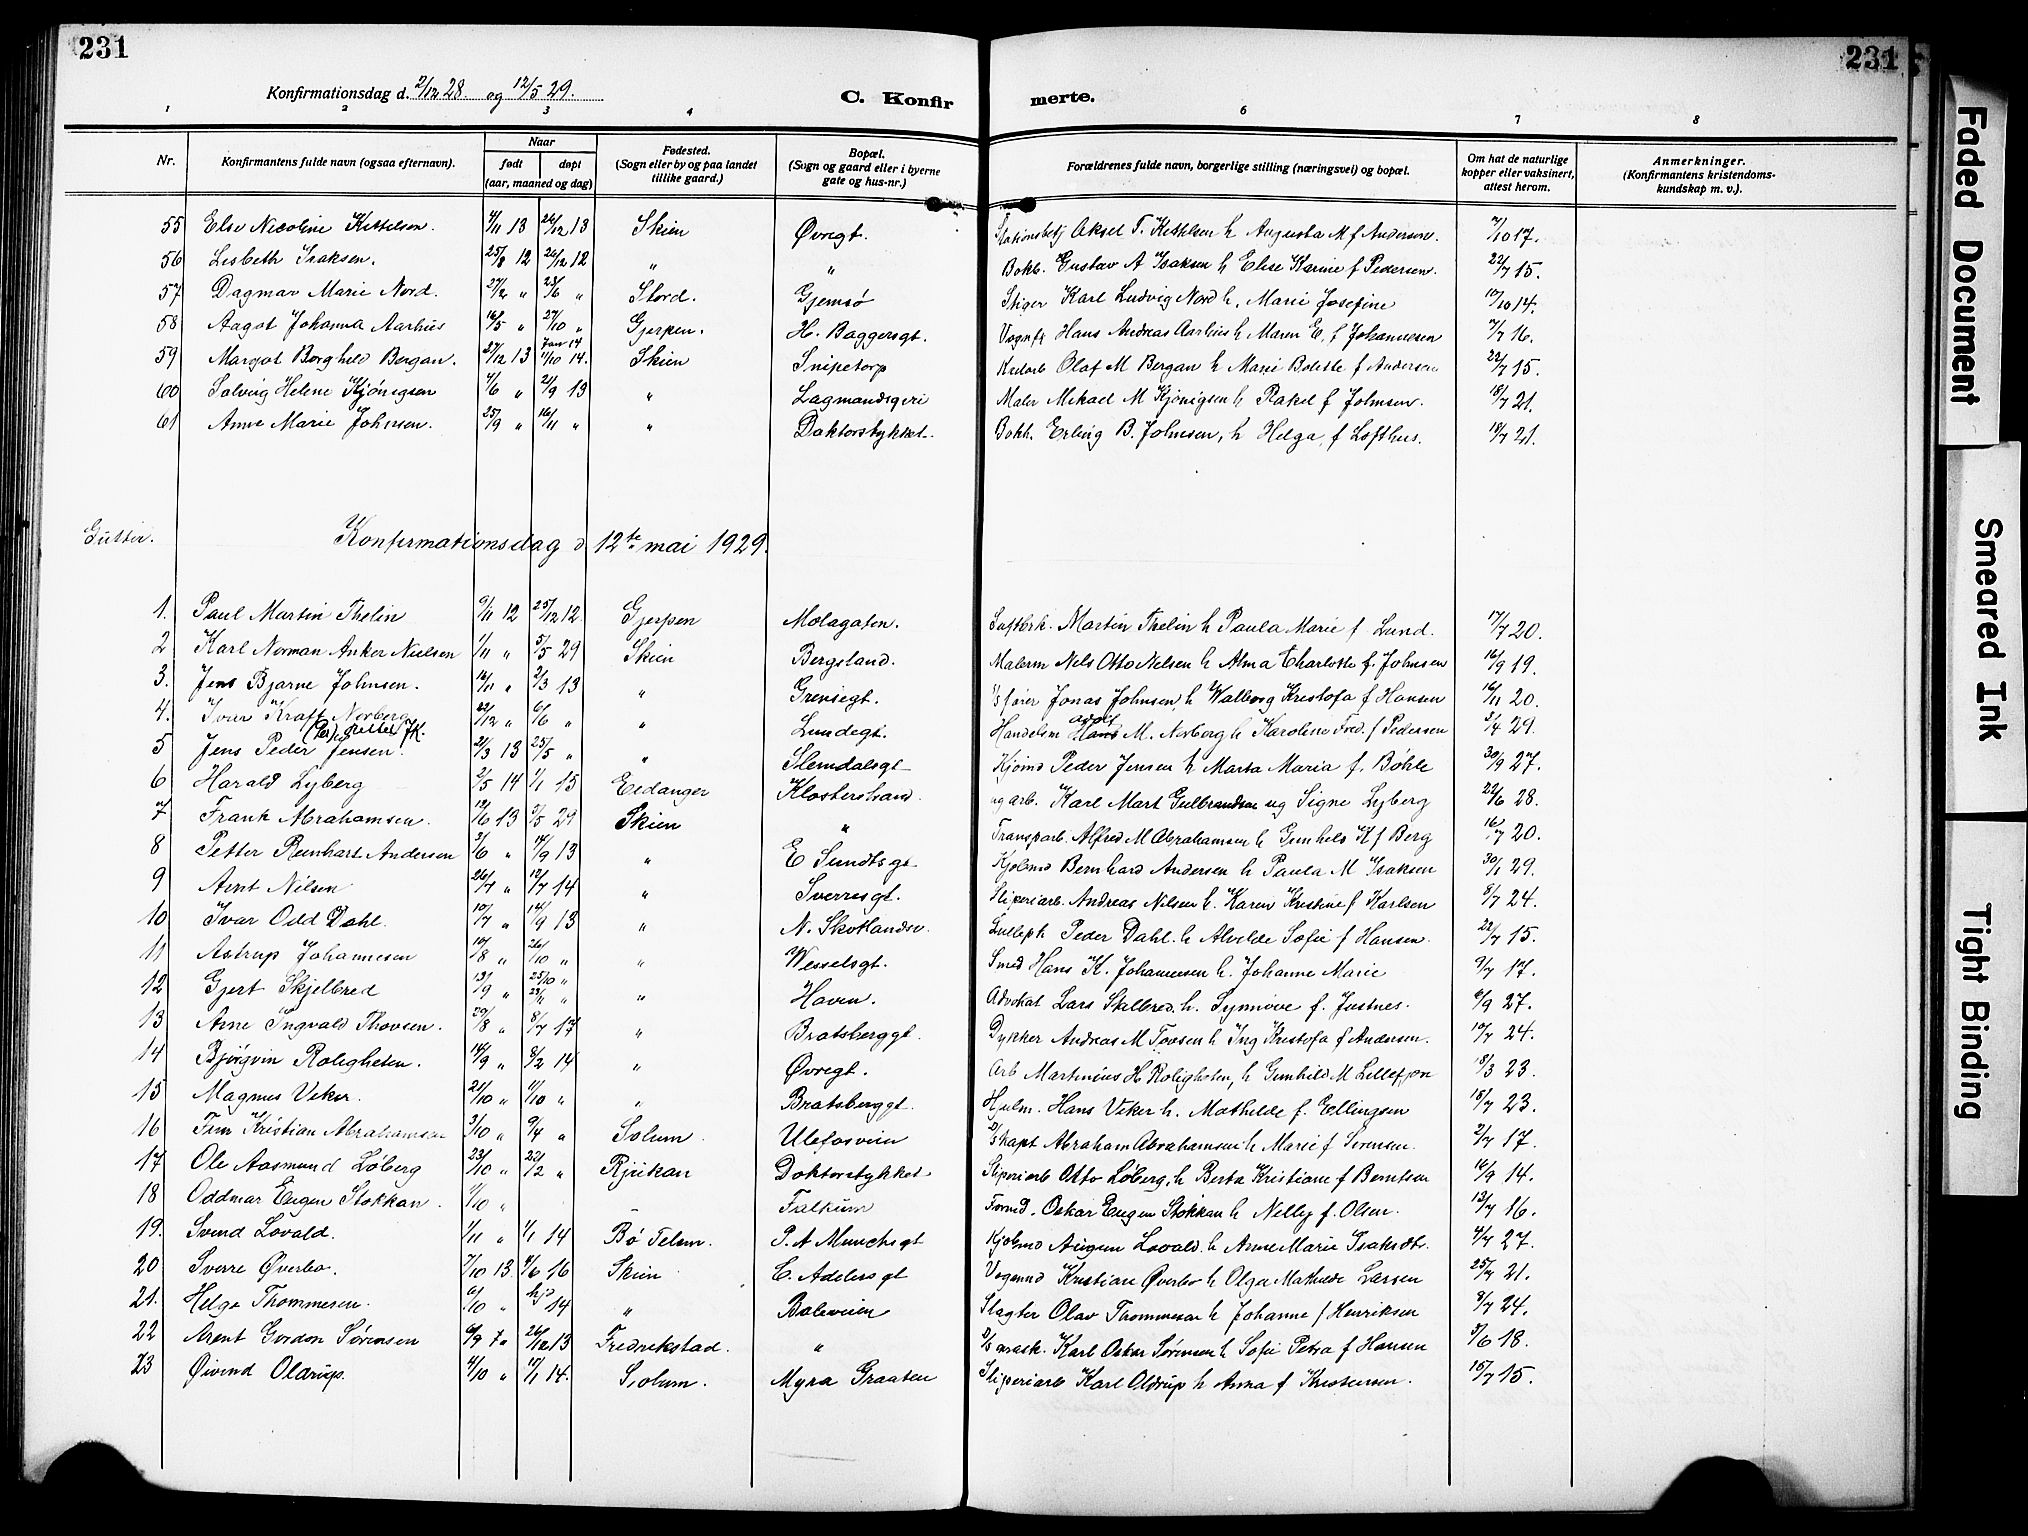 231
231
Konfirmationsdag d. 2/12 28. og 12/5 29.
C. Konfir
merte.
1 2 3 4 5 6 7 8
Nr.
Konfirmantens fulde navn (ogsaa efternavn).
Naar
født
døpt
(aar, maaned og dag)
Fødested.
(Sogn eller by og paa landet
tillike gaard.)
Bopæl.
(Sogn og gaard eller i byerne
gate og hus-nr.)
Forældrenes fulde navn, borgerlige stilling (næringsvei) og bopæl.
Om hat de naturlige
kopper eller vaksinert,
attest herom.
Anmerkninger.
(Konfirmantens kristendoms-
kundskap m. v.).
55 Else Nicoline Kittelsen. 4/11 13 26/12 13 Skien Øvregt. Stationsbetj Aksel T. Kittelsen h Augusta M f Andersen. 7/10 17.
56 Lisbeth Isaksen. 25/8 12 26/12 12 " " Bokh. Gustav A Isaksen h Elise Karine f Pedersen. 22/7 15.
57 Dagmar Marie Nord. 27/2 " 28/6 " Stord. Gjemsø Stiger Karl Ludvig Nord h. Marie Josefine 10/10 14.
58 Aagot Johanna Aarhus 16/5 " 27/10 " Gjerpen. H. Baggersgt. Vognfr Hans Andreas Aarhus h Maren E. f Johannesen 7/7 16.
59 Margot Borghild Bergan. 27/12 13 11/10 14. Skien Snipetorp Olaf M Bergan h Marie Bolette f Andersen 22/7 15.
60 Solveig Helene Kjønigsen 4/6 " 21/9 13 " Lagmandsgri Maler Mikael M Kjønigsen h Rakel f Johnsen. 18/7 21.
61 Anne Marie Johnsen. 25/9 " 16/11 " " Doktorstykket. Bokh. Erling B. Johnsen, h Helga, f Lofthus. 18/7 21.
Gutter. Konfirmationsdag d 12te mai 1929.
1. Paul Martin Thelin 9/11 12 25/12 12. Gjerpen Molagaten. Martin Thelin h Paula Marie f Lund. 17/7 20.
2 Karl Norman Anker Nielsen 1/11 " 5/5 29 Skien Bergsland. Malerm Nels Otto Nelsen h Alma Charlotte f. Johnsen 16/9 19.
3. Jens Bjarne Johnsen. 16/11 " 2/3 13 " Grensegt. Jonas Johnsen, h Walborg Kristofa f Hansen 16/11 20.
4. Ivar Kraft Norberg 22/12 " 6/6 " " Lundegt. Handelsm Hans M. Norberg h Karoline Fred. f Pedersen 3/4 29.
5 Jens Peder Jensen. 21/3 13 25/5 " " Slemdalsgt Peder Jensen h Marta Maria f. Bøhle 30/9 27.
6 Harald Lyberg 2/5 14 1/1 15 Eidanger Klosterstrand. ug arb. Karl Mart Gulbrandsen ug Signe Lyberg 22/6 28.
7 Frank Abrahamsen. 19/6 13 5/5 29 Skien " Transparb. Alfred M Abrahamsen h Gunhild K f Berg 16/7 20.
8 Petter Reinhart Andersen 3/6 " 14/9 13 " E Sundtsgt Kjolmd Bernhard Andersen h Paula M Isaksen 30/1 29.
9 Arnt Nilsen 26/7 " 12/7 14 " Sverresgt. Sliperiarb. Andreas Nilsen h. Karen Kristine f Karlsen 8/7 24.
10 Ivar Odd Dahl. 10/7 " 14/9 13 " N. Skotlandsv. Peder Dahl. h Alvilde Sofie f Hansen. 22/7 15.
11 Astrup Johannesen 10/8 " 26/10 " " Wesselsgt. Smed Hans K. Johannesen h. Johanne Marie 9/7 17.
12 Gjert Skjelbred 13/9 " 25/10 " " Haven. Advokat Lars Skilbred. h. Synnöve f. Justnes. 6/9 27.
13 Arne Ingvald Thovsen. 29/8 " 8/7 17 " Bratsberggt. Dykker Andreas M Tovsen h Ing Kristofa f Andersen. 10/7 24.
14 Bjørgvin Roligheten. 14/9 " 8/2 14 " Øvregt. Arb Martinius H Roligheten, h Gunhild M Lillefjøre 18/3 23.
15 Magnus Viker. 21/10 " 11/10 " " Bratsberggt. Hjulm. Hans Viker h. Mathilde f. Ellingsen 18/7 23.
16 Finn Kristian Abrahamsen 3/10 " 9/4 " Solum. Ulefosveien D/S kapt Abraham Abrahamsen h Marie f Sørensen. 2/7 17.
17 Ole Aasmund Løberg 23/10 " 22/12 " Rjukan Doktorstykket Sliperiarb Otto Løberg, h Berta Kristiane f Berntsen 16/9 14.
18 Oddmar Eugen Stokkan. 4/10 " – Falkum Formd. Oskar Eugen Stokkan h Nelly f. Olsen. 13/7 16.
19. Svend Lovald. 1/11 " 1/1 14 Bö Telem. P. A Munchsgt Kjolmd Augun Lovald. h Anne Marie Isaksdtr. 4/4 27.
20 Sverre Øverbo. 7/10 13 4/6 16 Skien C. Adelersgt Vognmd Kristian Øverbo h Olga Mathilde Larsen 25/4 21.
21. Helge Thommesen. 6/10 " hjd 14 " Baleveien Slagter Olav Thommesen h Johanne f Henriksen 8/7 24.
22 Arent Gordon Sørensen 6/9 " 26/12 13 Fredrikstad. " D/S mask. Karl Oskar Sørensen h Sofie Petra f Hansen 3/6 18.
23 Øivind Oldrup. 4/10 " 17/1 14. Solum. Myra Graaten Sliperiarb Karl Oldrup h Anna f Kristensen. 15/7 15.
Faded Document
Smeared Ink
Tight Binding